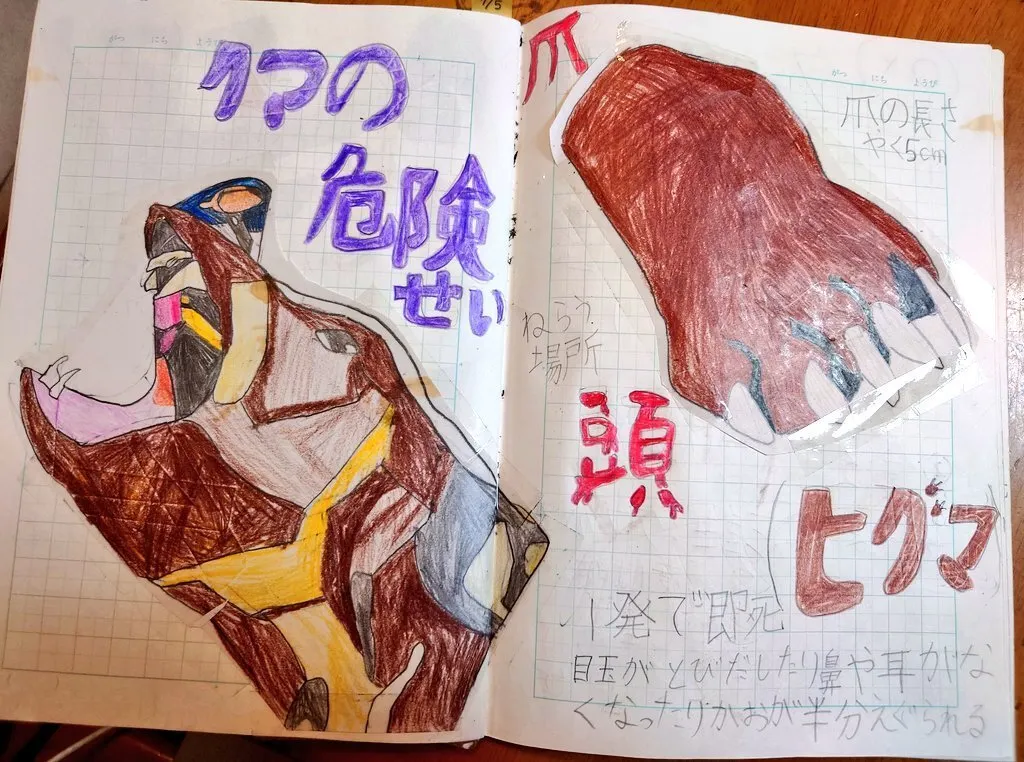 7/5
がつ にち ようび
クマの
危険
せい
爪
がつ にち ようび
爪の長さ
やく5cm
ねらう
場所
頭
(ヒグマ)
一発で即死
目玉がとびだしたり鼻や耳がな
くなったりかおが半分えぐられる